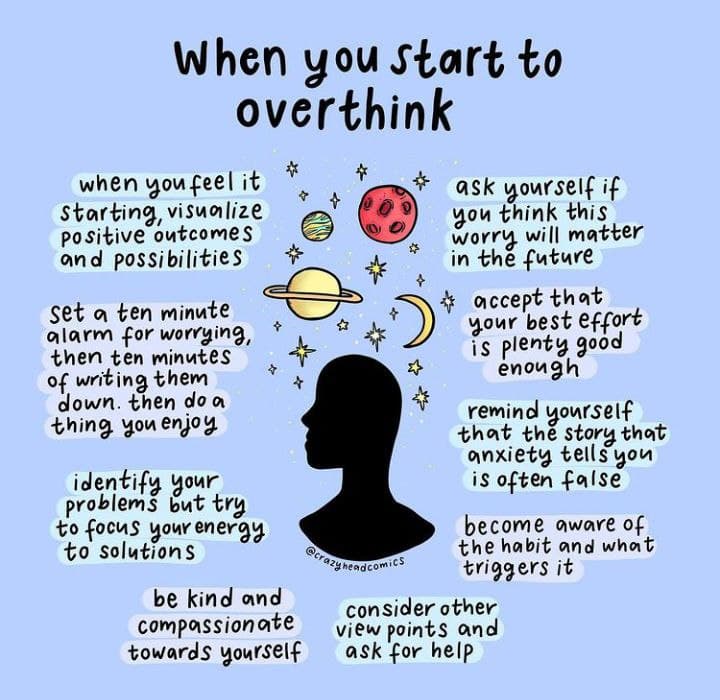 When you start to
overthink
when you feel it
starting, visualize
positive outcomes
and possibilities
set a ten minute
alarm for worrying,
then ten minutes
of writing them
down. then do a
thing you enjoy
identify your
problems but try
to focus your energy
to solutions
be kind and
compassionate
towards yourself
ask yourself if
you think this
worry will matter
in the future
accept that
your best effort
is plenty good
enough
remind yourself
that the story that
anxiety tells you
is often false
become aware of
the habit and what
triggers it
consider other
view points and
ask for help
@crazyheadcomics